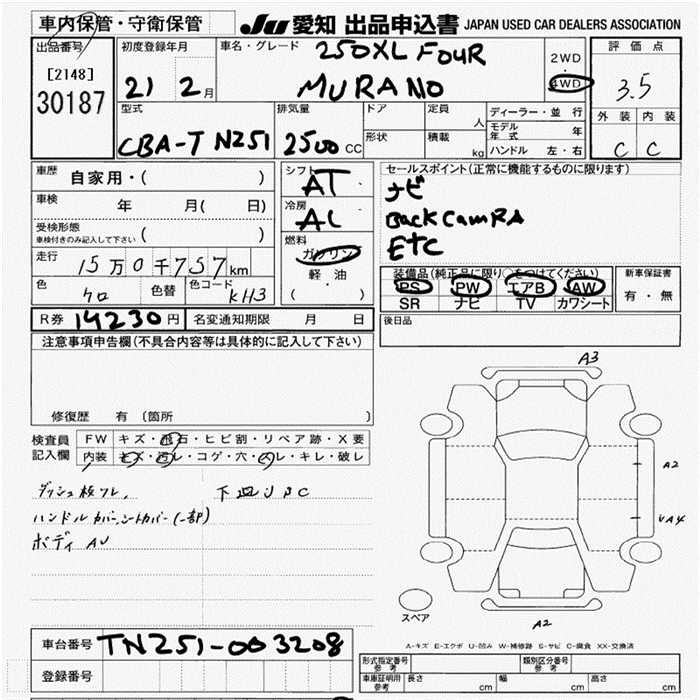 車内保管・守衛保管
JU 愛知 出品申込書 JAPAN USED CAR DEALERS ASSOCIATION
出品番号
[2148]
30187
初度登録年月
21 2月
車名・グレード
250XL FOUR
MURANO
2WD
・
4WD
評価点
3.5
外装 内装
C C
型式
CBA-TNZ51
排気量
2500 CC
ドア
形状
定員
人
積載
kg
ディーラー・並行
モデル年式 年
ハンドル 左・右
車歴 自家用・( )
車検 年 月( 日)
受検形態
車検付きのみ記入して下さい ( )
走行 15万0千757km
色 クロ 色替 色コード KH3
シフト
AT
冷房
AC
燃料
ガソリン
・
軽油
( )
セールスポイント(正常に機能するものに限ります)
ナビ
Back CamRA
ETC
装備品(純正品に限り○をつけてください)
PS PW エアB AW
SR ナビ TV カワシート
新車保証書
有・無
R券 14230円 名変通知期限 月 日
後日品
注意事項申告欄(不具合内容等は具体的に記入して下さい)
修復歴 有 (箇所 )
検査員
記入欄
FW キズ・飛石・ヒビ割・リペア跡・X要
内装 キズ・汚レ・コゲ・穴・ワレ・キレ・破レ
ダッシュ板ワレ, 下廻リSC
ハンドルカバー,シートカバー(一部)
ボディ AU
A3
A2
UA4
A2
スペア
A-キズ E-エクボ U-凹み W-補修跡 S-サビ C-腐食 XX-交換済
車台番号 TNZ51-003208
登録番号
形式指定番号
参考
類別区分番号
参考
車庫証明用
参考
長さ cm 幅 cm 高さ cm